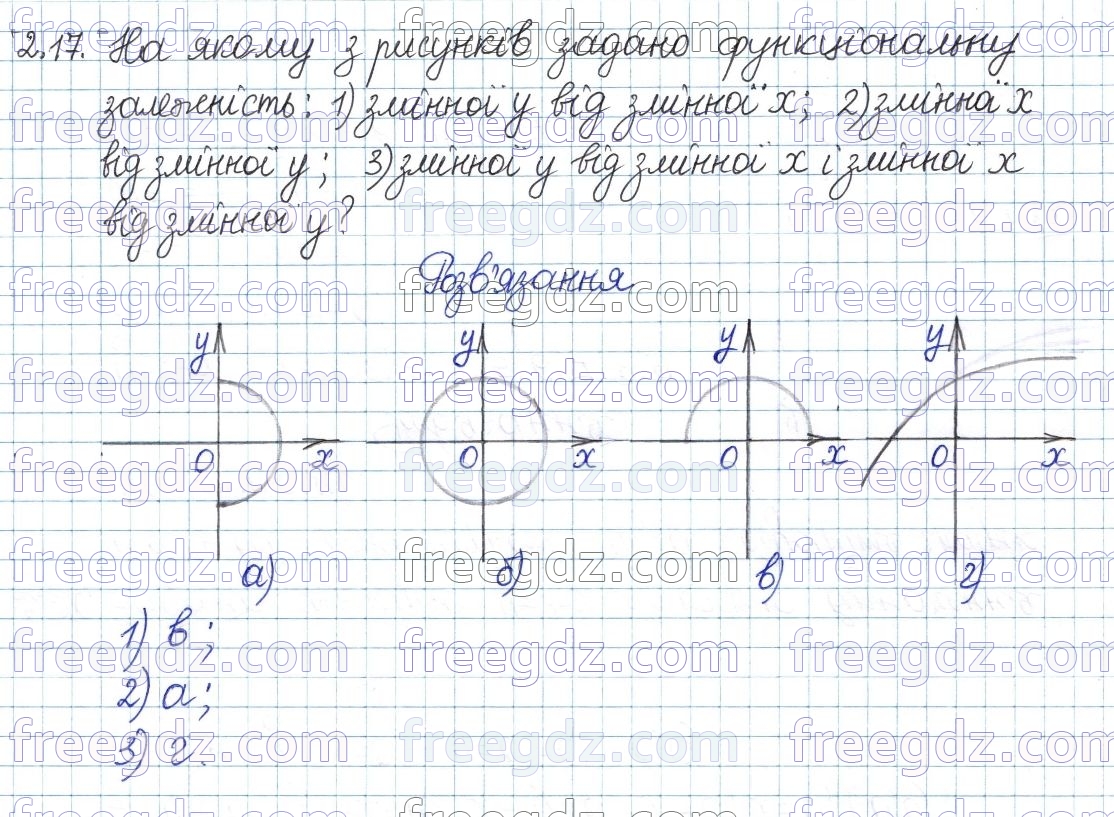 2.17. На якому з рисунків задано функціональну
залежність: 1) змінної y від змінної x; 2) змінної x
від змінної y; 3) змінної y від змінної x і змінної x
від змінної y?
Розв'язання
y y y y
0 x 0 x 0 x 0 x
а) б) в) г)
1) в;
2) а;
3) г.
freegdz.com